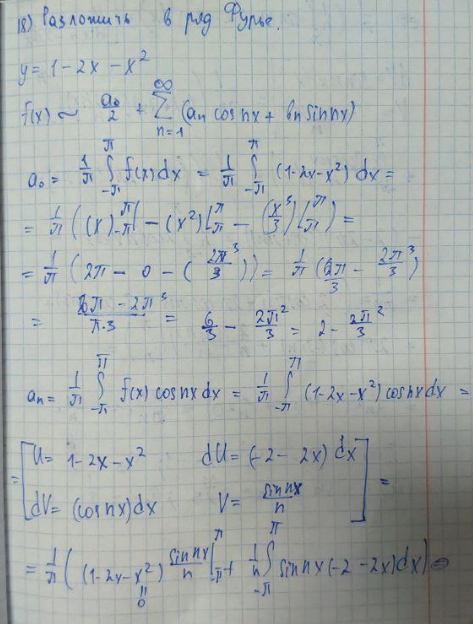 18) Разложить в ряд Фурье.
y = 1 - 2x - x²
f(x) ~ a₀/2 + ∑_{n=1}^{∞} (aₙ cos nx + bₙ sin nx)
a₀ = 1/π ∫_{-π}^{π} f(x)dx = 1/π ∫_{-π}^{π} (1-2x-x²) dx =
= 1/π ((x)|_{-π}^{π} - (x²)|_{-π}^{π} - (x³/3)|_{-π}^{π}) =
= 1/π (2π - 0 - (2π³/3)) = 1/π (6π/3 - 2π³/3)
= (6π - 2π³)/(π·3) = 6/3 - 2π²/3 = 2 - 2π²/3
aₙ = 1/π ∫_{-π}^{π} f(x) cos nx dx = 1/π ∫_{-π}^{π} (1-2x-x²) cos nx dx =
= [U = 1-2x-x² dU = (-2-2x)dx
dV = (cos nx)dx V = sin nx/n] =
= 1/π ((1-2x-x²) sin nx/n |_{-π}^{π} + 1/n ∫_{-π}^{π} sin nx (-2-2x)dx) =
||
0